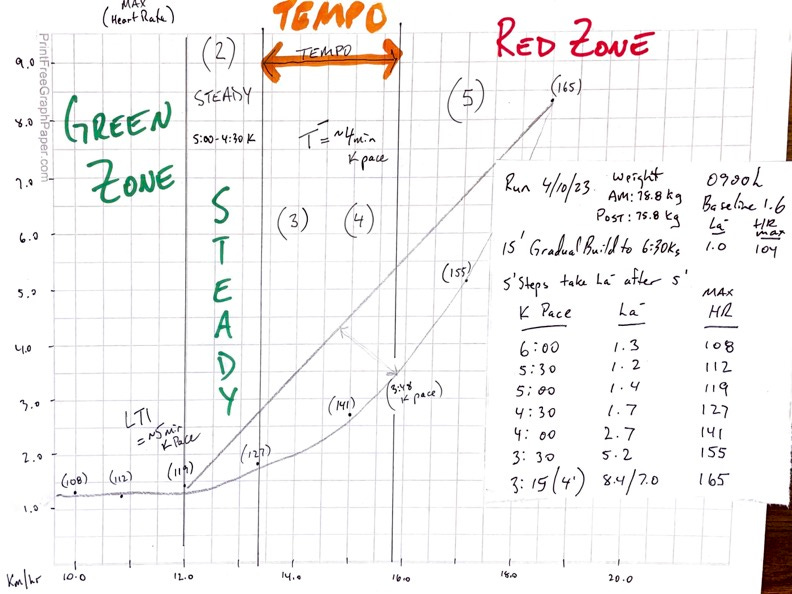 MAX
(Heart Rate)
TEMPO
TEMPO
RED ZONE
PrintFreeGraphPaper.com
9.0
(2)
STEADY
5:00-4:30 K
GREEN
ZONE
T = ~4 min
K pace
(5)
(165)
8.0
7.0
6.0
5.0
4.0
3.0
2.0
1.0
STEADY
(3) (4)
(155)
(141)
(3:48
K pace)
(127)
LT1
= ~5 min
K Pace
(119)
(112)
(108)
Km/hr 10.0 12.0 14.0 16.0 18.0 20.0
Run 4/10/23. Weight 0900L
AM: 75.8 kg Baseline 1.6
Post: 75.8 kg La- HR max
15' Gradual Build to 6:30Ks 1.0 104
5' Steps take La- after 5'
K Pace La- MAX HR
6:00 1.3 108
5:30 1.2 112
5:00 1.4 119
4:30 1.7 127
4:00 2.7 141
3:30 5.2 155
3:15 (4') 8.4/7.0 165